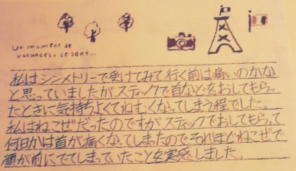 Un moment de
vacances. Ce sont...
私はシンメトリーで受けてみて行く前は痛いのかな
と思っていましたがスティックで首かたをおしてもらっ
たときに気持ちよくてねむくなってしまう程でした。
私はねこぜだったのですがスティックでおしてもらって
何日かは首が痛くなってしまったのでそれほどねこぜで
首が前にでてしまっていたことを実感しました。